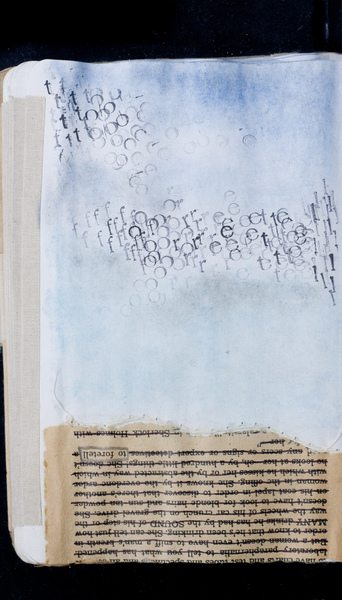 to
foretell
laboratory paraphernalia to tell you what has happened.
But a woman doesn't even have to sniff a man's breath in
order to know he isn't been drinking. She can tell just how
MANY drinks he has had by the SOUND of his step or the
way the wheels of his car crunch on the gravel. She
doesn't have to look for blonde hairs and face powder
on his coat lapel in order to discover that there's another
woman in the offing. She knows it by the overdone ardor
with which he kisses her or by the abstracted way in which
he looks at her, oh, by a hundred little things. She doesn't
any seers or signs or expert detectives to foretell a
her
Sherlock Holmes with